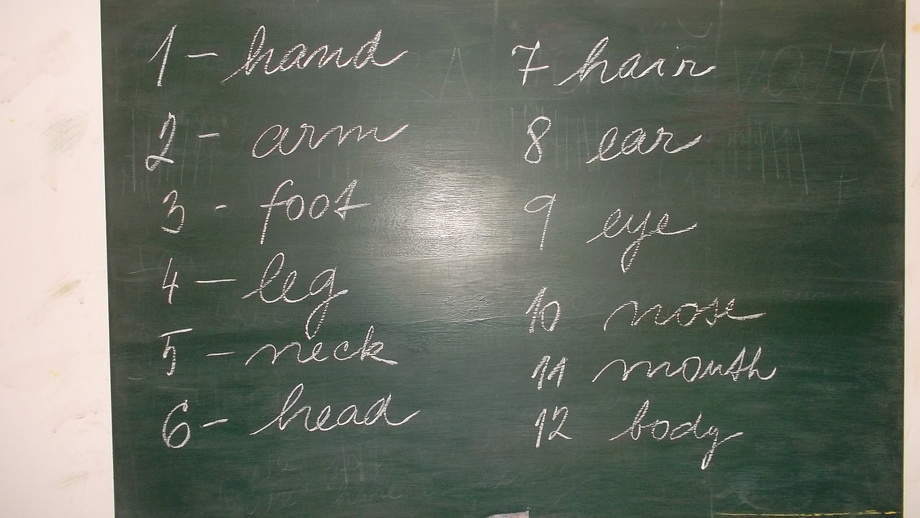 1 - hand
2 - arm
3 - foot
4 - leg
5 - neck
6 - head
7 hair
8 ear
9 eye
10 nose
11 mouth
12 body